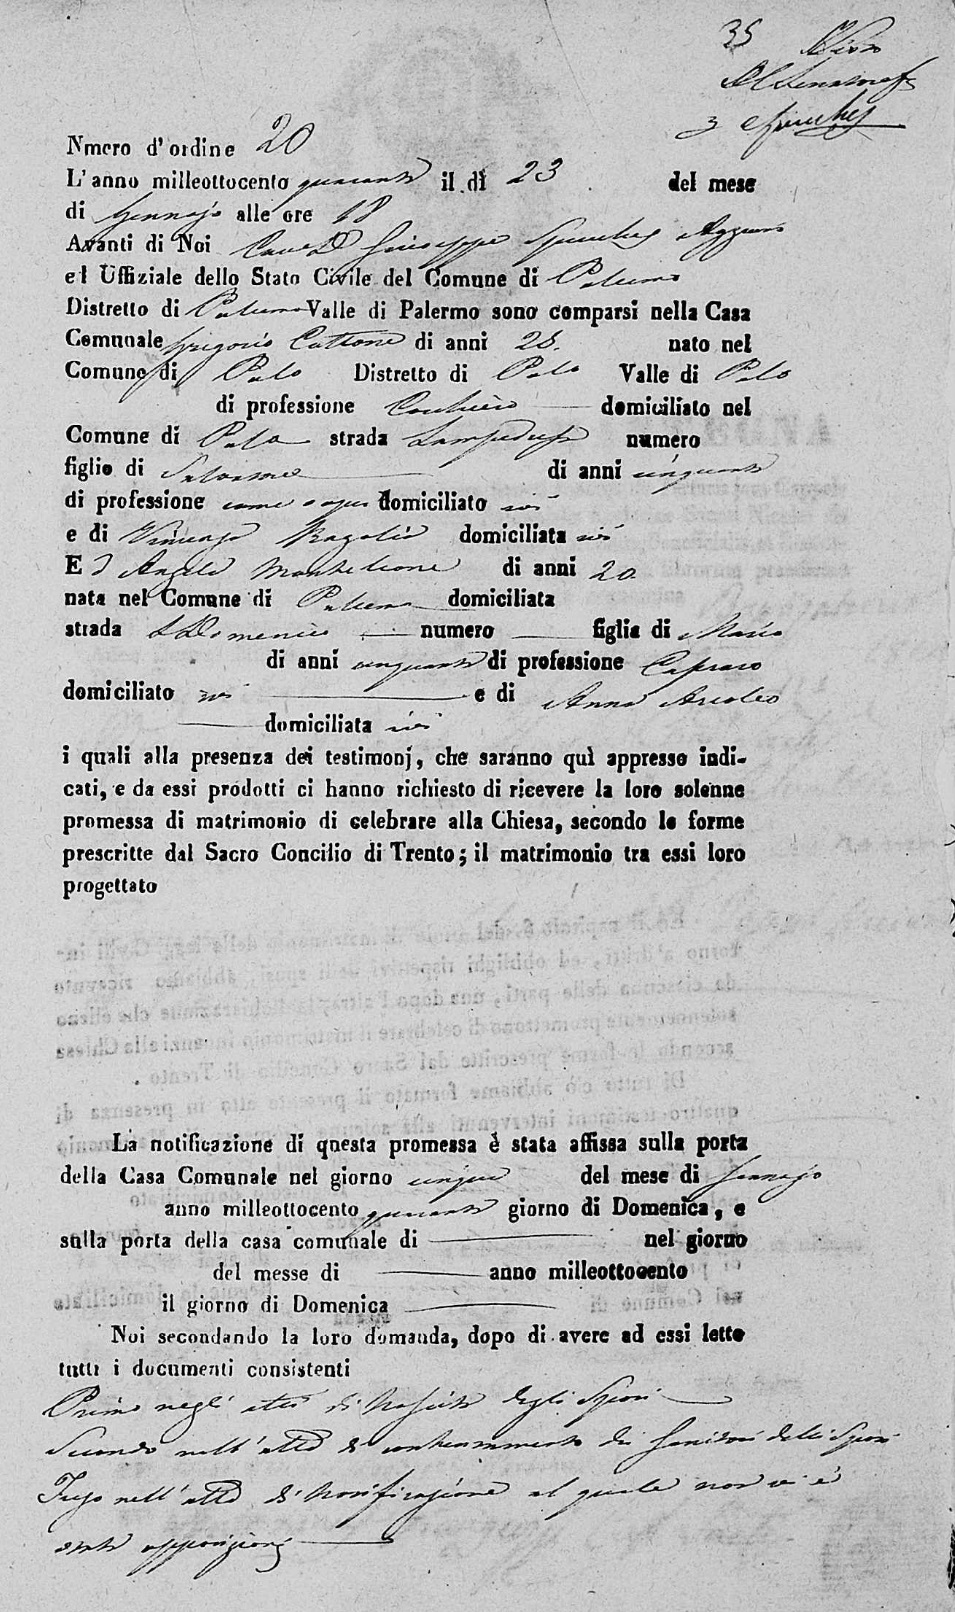 35
3 Spuches
Nmero d'ordine 20
L'anno milleottocento quaranta il dì 23 del mese
di Gennajo alle ore 18
Avanti di Noi Cav. D. Giuseppe Spuches Aggiun
el Uffiziale dello Stato Civile del Comune di Palermo
Distretto di Palermo Valle di Palermo sono comparsi nella Casa
Comunale Grigorio Cattone di anni 28. nato nel
Comune di Palo Distretto di Palo Valle di Palo
di professione domiciliato nel
Comune di Palo strada Lampedusa numero
figlio di Salvatore di anni cinquanta
di professione come sopra domiciliato ivi
e di Vincenza domiciliata ivi
E D Angela Monteleone di anni 20
nata nel Comune di Palermo domiciliata
strada S Domenico numero figlia di Mario
di anni cinquanta di professione Capraro
domiciliato ivi e di Anna Arcoleo
domiciliata ivi
i quali alla presenza dei testimonj, che saranno quì appresso indi-
cati, e da essi prodotti ci hanno richiesto di ricevere la loro solenne
promessa di matrimonio di celebrare alla Chiesa, secondo le forme
prescritte dal Sacro Concilio di Trento; il matrimonio tra essi loro
progettato
La notificazione di questa promessa è stata affissa sulla porta
della Casa Comunale nel giorno cinque del mese di Gennajo
anno milleottocento quaranta giorno di Domenica, e
sulla porta della casa comunale di nel giorno
del messe di anno milleottocento
il giorno di Domenica
Noi secondando la loro domanda, dopo di avere ad essi letto
tutti i documenti consistenti
Primo negli atti di Nascita degli Sposi
Secondo nell'atto di consentimento dei Genitori delli Sposi
Terzo nell'atto di Notificazione al quale non vi è
stata opposizione